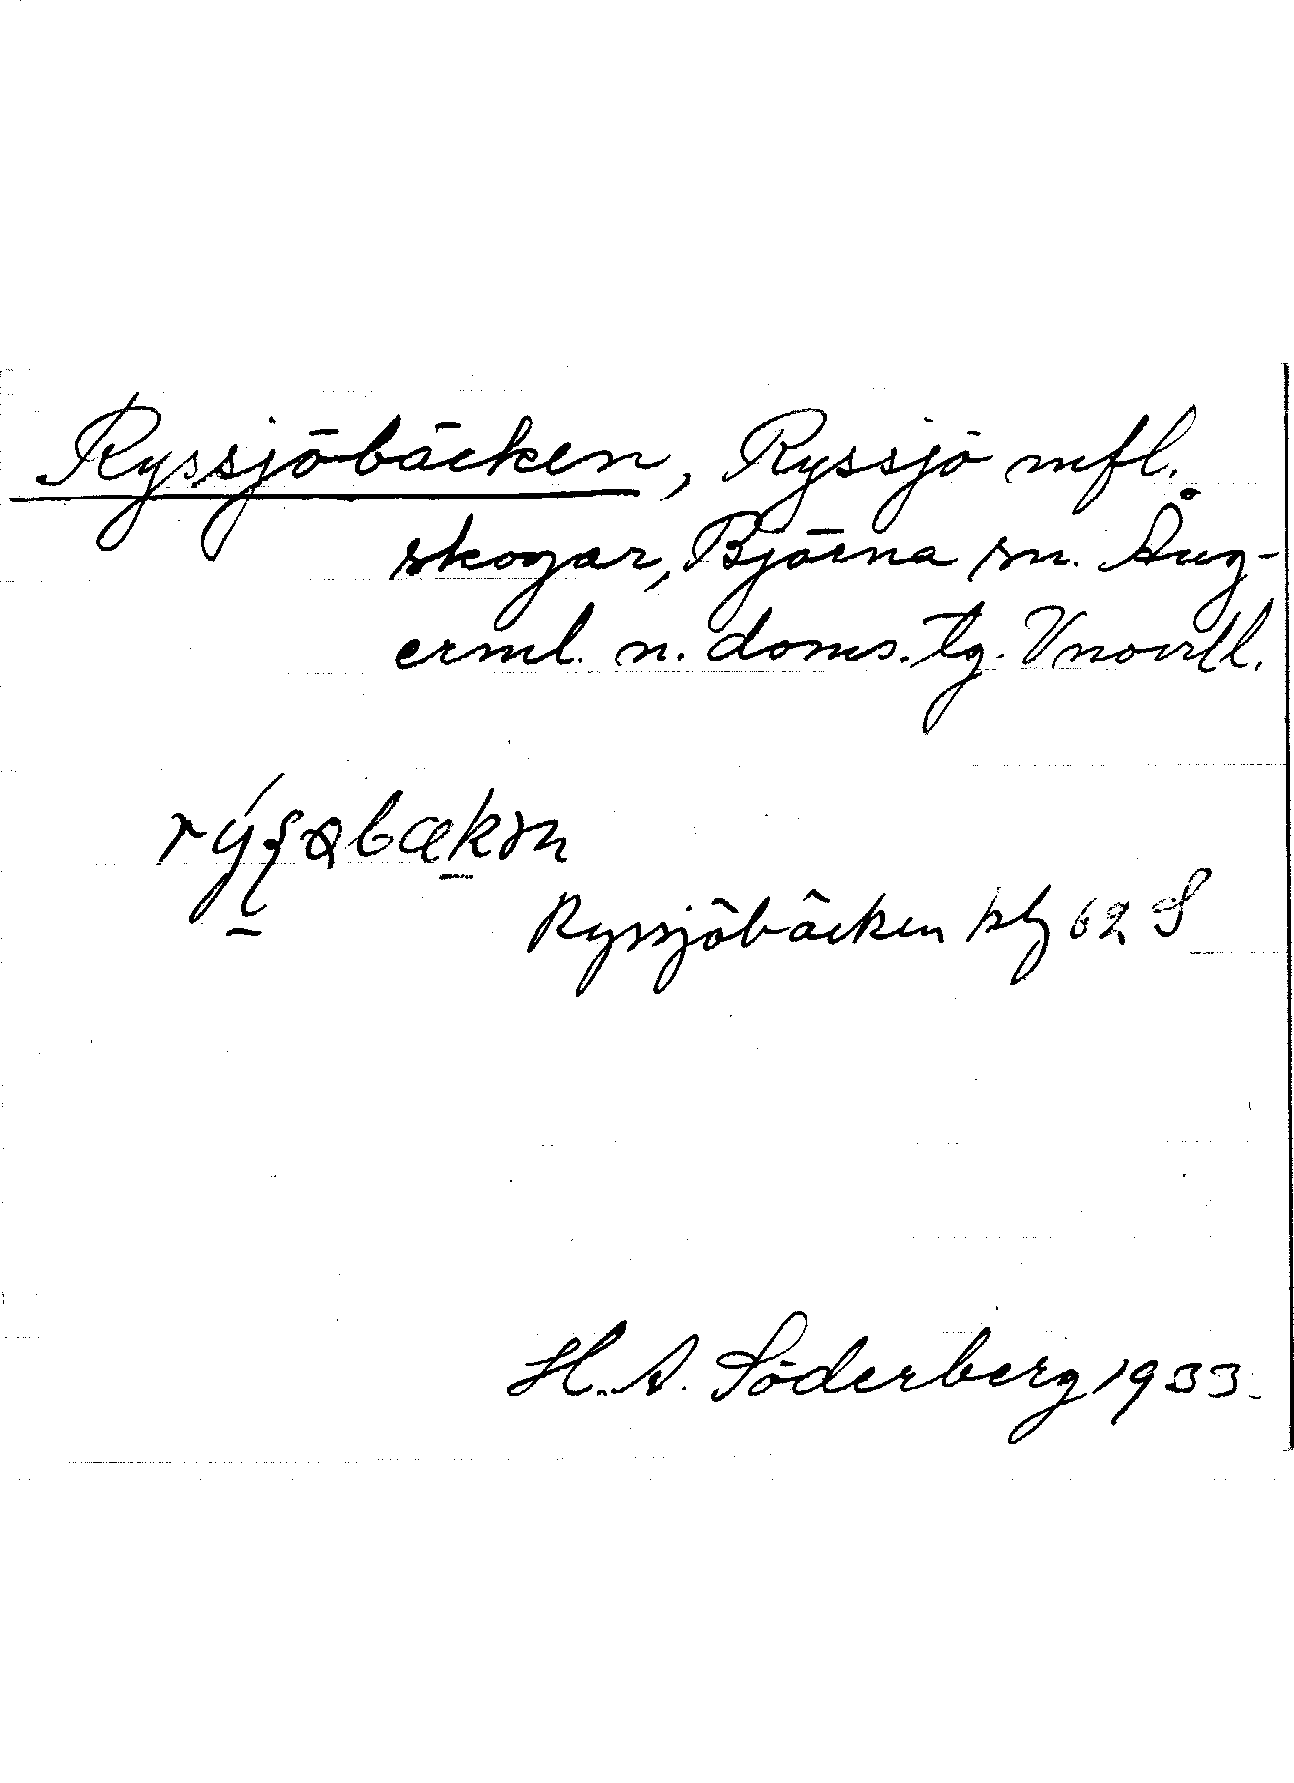 Ryssjöbäcken, Ryssjö mfl.
skogar, Björna sn. Ång-
erml. n. doms. tg. Vnorrl.
Ryssjöbäcken blg 62 S
H. A. Söderberg 1933.